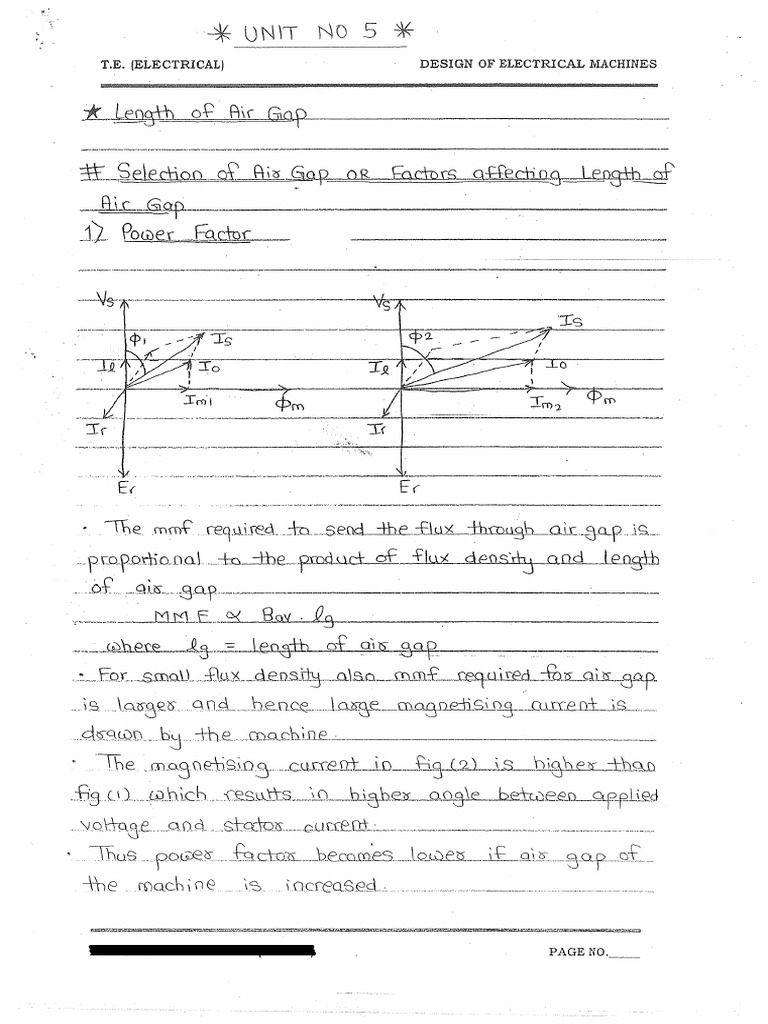 * UNIT NO 5 *
T.E. (ELECTRICAL) DESIGN OF ELECTRICAL MACHINES
* Length of Air Gap
# Selection of Air Gap OR Factors affecting Length of
Air Gap
1) Power Factor
Vs Vs
ϕ1 Is ϕ2 Is
Il Io Il Io
Im1 ϕm Im2 ϕm
Ir Ir
Er Er
· The mmf required to send the flux through air gap is
proportional to the product of flux density and length
of air gap
MMF ∝ Bav. lg
where lg = length of air gap
· For small flux density also mmf required for air gap
is larger and hence large magnetising current is
drawn by the machine.
· The magnetising current in fig (2) is higher than
fig (1) which results in higher angle between applied
voltage and stator current.
· Thus power factor becomes lower if air gap of
the machine is increased.
PAGE NO.____